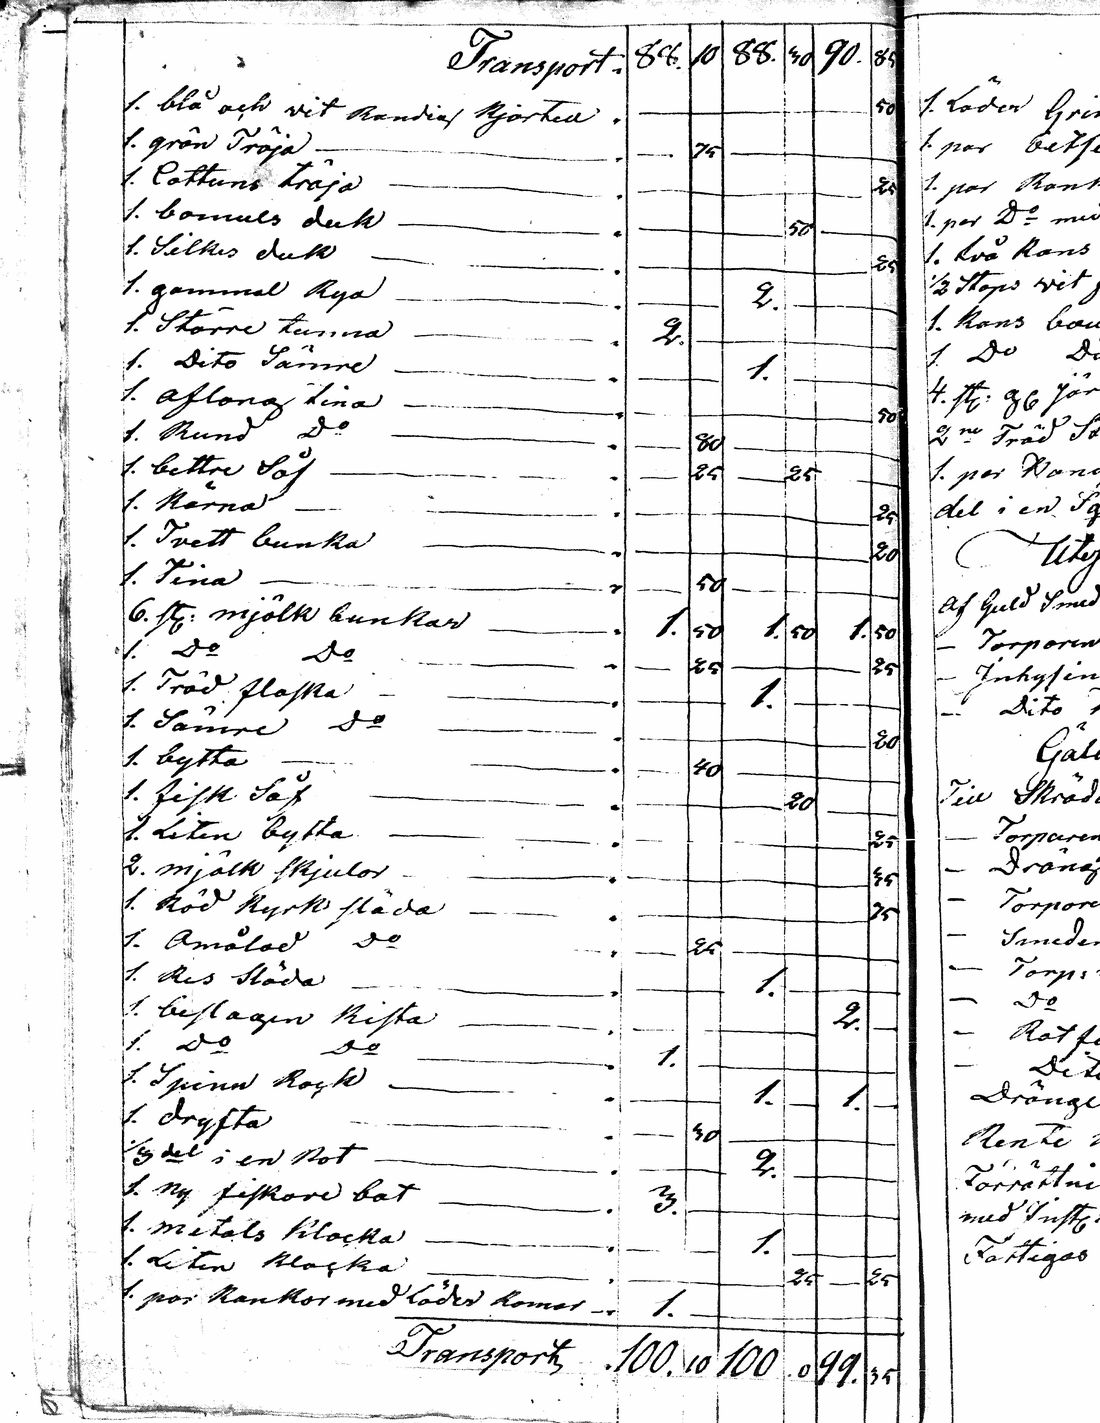 Transport. 88. 10 88. 30 90. 85
1. blå och vit Randig Kjortell . 50
1. grön Tröja . 75
1. Cottuns tröja . 25
1. bomuls duk . 50
1. Silkes duk . 25
1. gammal Rya . 2.
1. Större tunna . 2.
1. Dito Sämre . 1.
1. aflång tina . 50
1. Rund Do . 80
1. bettre Så . 25 25
1. Kärna . 25
1. Tvett bunka . 20
1. Tina . 50
6. st: mjölk bunkar . 1. 50 1. 50 1. 50
1. Do Do . 25 25
1. Träd flaska . 1.
1. Sämre Do . 20
1. bytta . 40
1. fisk Så . 20
1. Liten bytta . 25
2. mjölk skjulor . 35
1. Röd Kyrk släda . 75
1. Omålad Do . 25
1. Res Släda . 1.
1. beslagen Kista . 2.
1. Do Do . 1.
1. Spinn Rock . 1. 1.
1. dryfta . 30
1/3 del i en Not . 2.
1. ny fiskare bat . 3.
1. metals Klocka . 1.
1. Liten Klocka . 25 25
1. par Rankor med Läder Romar . 1.
Transport . 100. 10 100 .0 99. 35
1. Läder
1. par
1. par
1. par Do med
1. två Kans
1/2 Stops vit
1. Kans
1 Do
4. st:
2ne Träd
1. par
del i en
af Guld Smed
– Torparen
–
– Dito
Till
– Torparen
– Dräng
–
– Smeden
–
– Do
–
–
Dränge
Rente
med
Fattigas